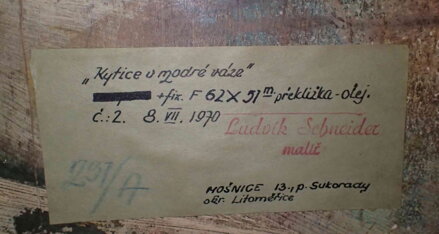 „Kytice v modré váze"
+fix. F 62X51 m překližka-olej.
č.: 2. 8. VII. 1970
Ludvík Schneider
malíř
251/A
HOŠNICE 13., p. Sukorady
okr. Litoměřice